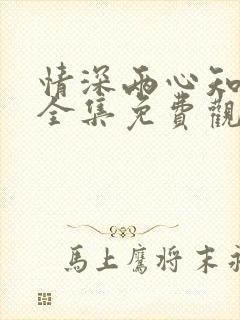 情深兩心知
全集免費觀
馬上鷹将末